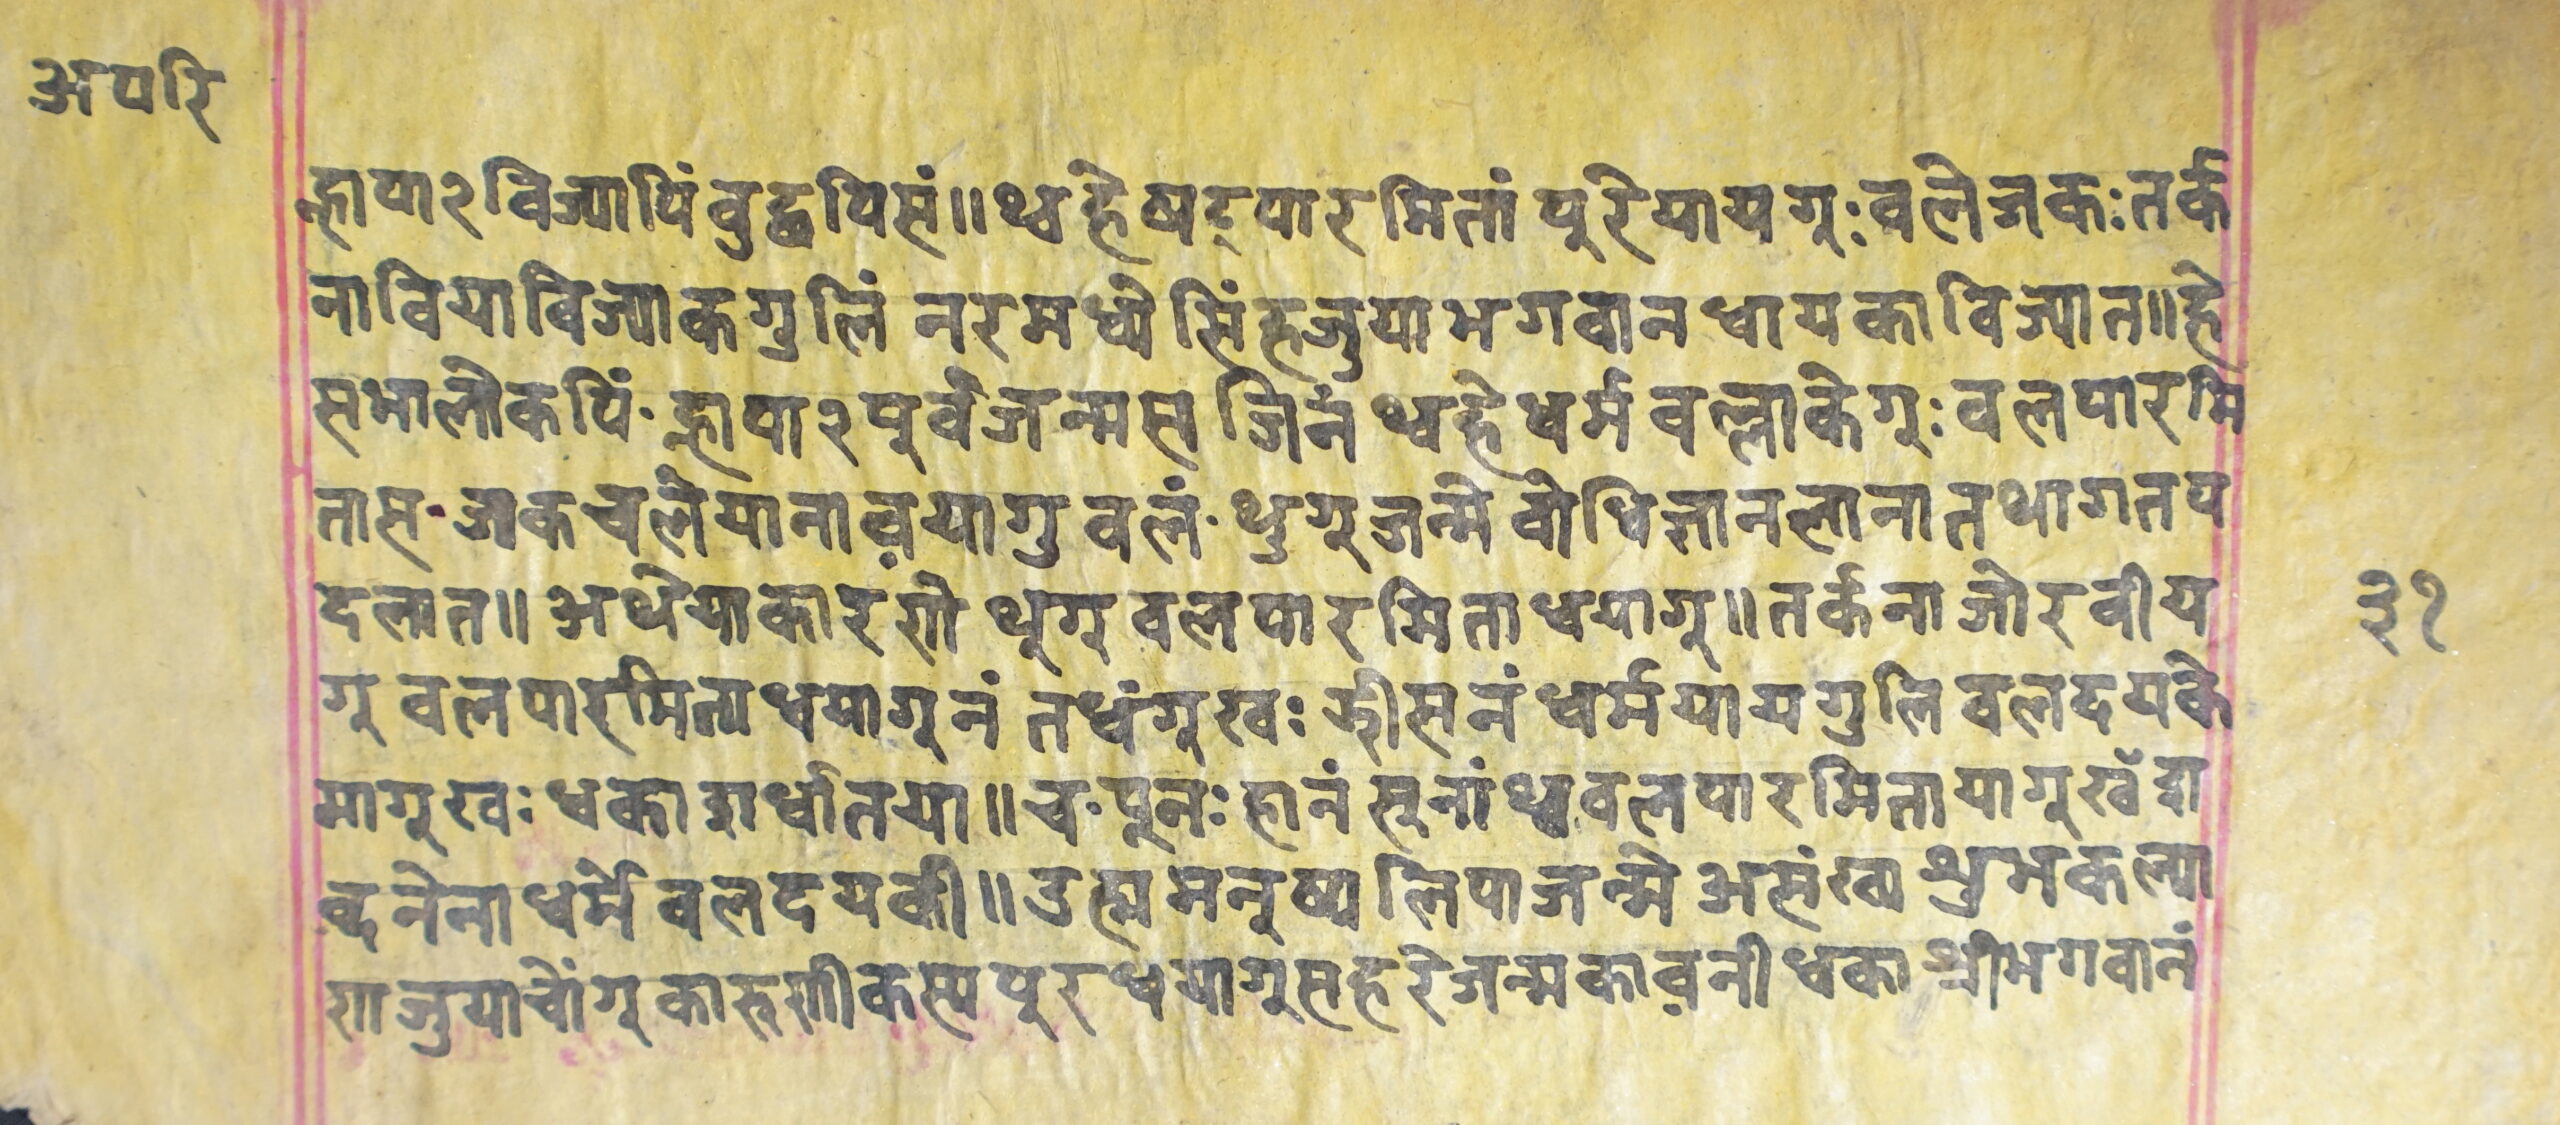 अपरि
ह्लापा२विज्यापिं वुद्धपिसं॥थ्वहे षट्पारमितां पुरेयायगुः वलेजकः तर्क
नावियाविज्याकगुलिं नरमध्ये सिंहजुयाभगवानधायकाविज्यात॥हे
सभालोकपिं· ह्लापा२पुर्वजन्मस जिनं थ्वहेधर्म वल्लाकेगुः वलपारमि
तास·जक चलेयानाव़यागु वलं· थुगूजन्मे वोधिज्ञानलानातथागतप
दलात॥अथेयाकारणे थुगू वलपारमिताधयागू॥तर्कना जोरवीय
गू वलपारमिताधयागूनं तधंगूखः झीसनं धर्मयायगुलि वलदयके
मागूखः धकाद्यार्धातया॥च·पुनः हानं सूनां थ्ववलपारमितायागूखँ द्वा
व्दनेना धर्मे वलदयकी॥उह्म मनुष्य लिपाजन्मे असंख्य श्रुभकल्या
णजुयाचोंगू कारुणीकस्य पुरधयागु सहरे जन्मकाव़नी धका श्रीभगवानं
३१